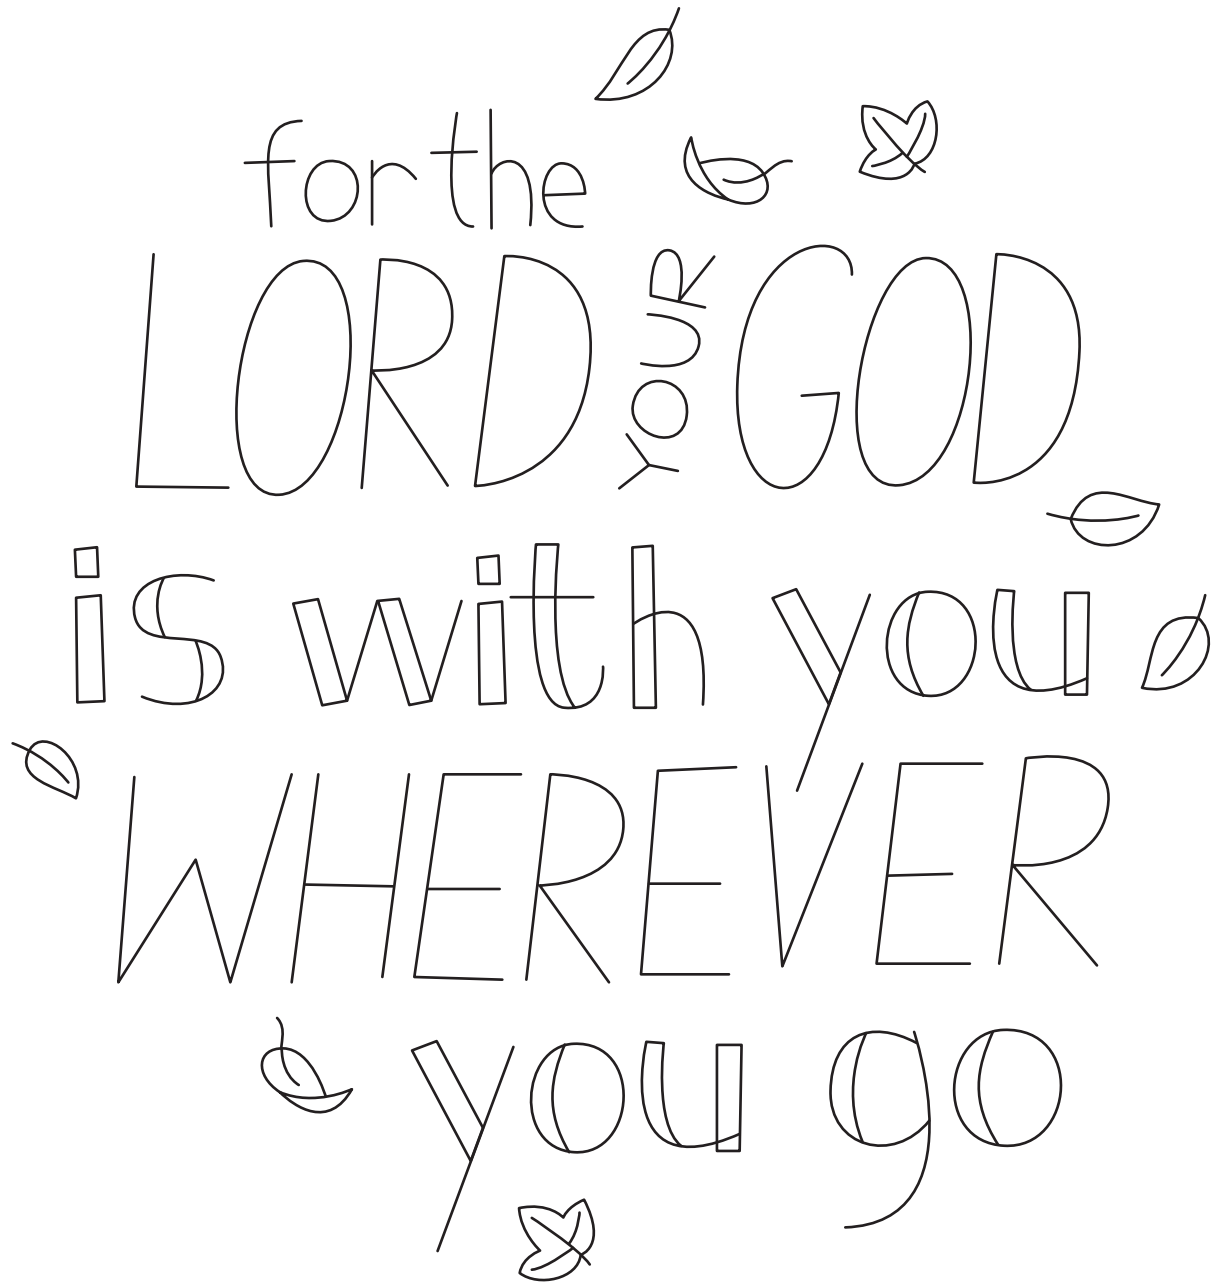 for the
LORD YOUR GOD
is with you
WHEREVER
you go